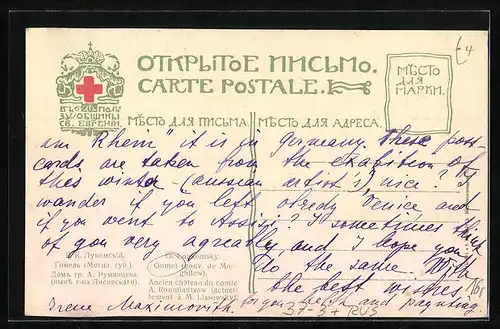 £4
ОТКРЫТОЕ ПИСЬМО.
CARTE POSTALE.
МѢСТО
ДЛЯ
МАРКИ.
ВЪ ПОЛЬЗУ ОБЩИНЫ
СВ. ЕВГЕНІИ.
МѢСТО ДЛЯ ПИСЬМА. МѢСТО ДЛЯ АДРЕСА.
am Rhein" it is in Germany. These post-
cards are taken from the exabition of
this winter - (russian artist's), nice? I
wander if you left already Venice and
if you went to Assisi? I sometimes think
of you very agreably and I hope you
do the same. With
the best wishes
for your health and paynting
Irene Maximovith.
Г. К. Лукомскій.
Гомель (Могил. губ.)
Домъ гр. А. Румянцева
(нынѣ г-на Лисовскаго).
G. Loukomsky.
Gomel (gouv. de Mo-
ghilew).
Ancien château du comte
A. Roumiantsow (actuel-
lement à M. Lissowsky).
37-3+ RUS